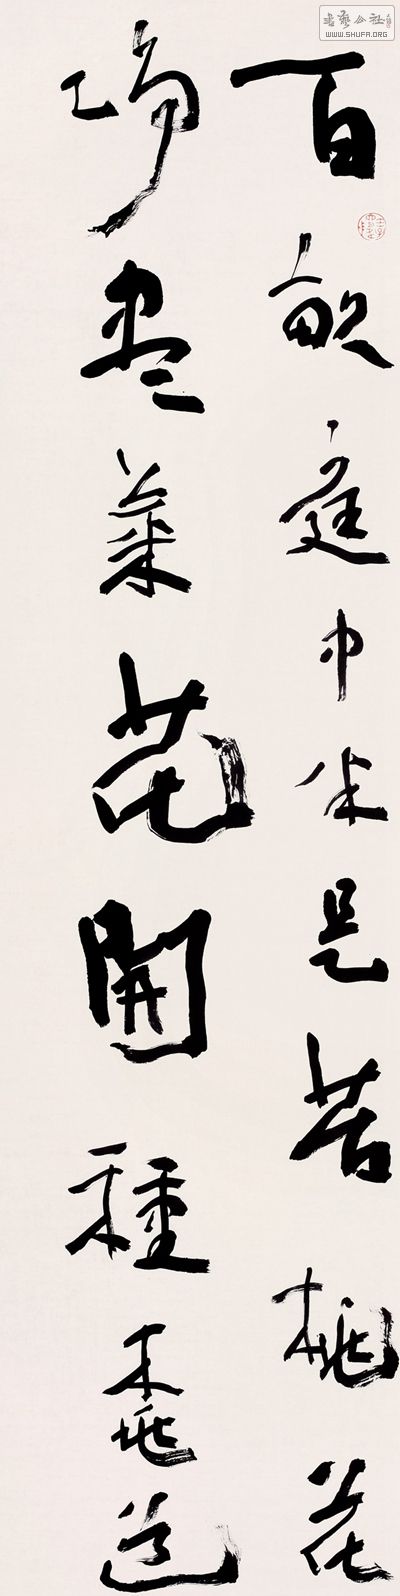 書藝公社
WWW.SHUFA.ORG
百畝庭中半是苔桃花
净盡菜花開種桃道